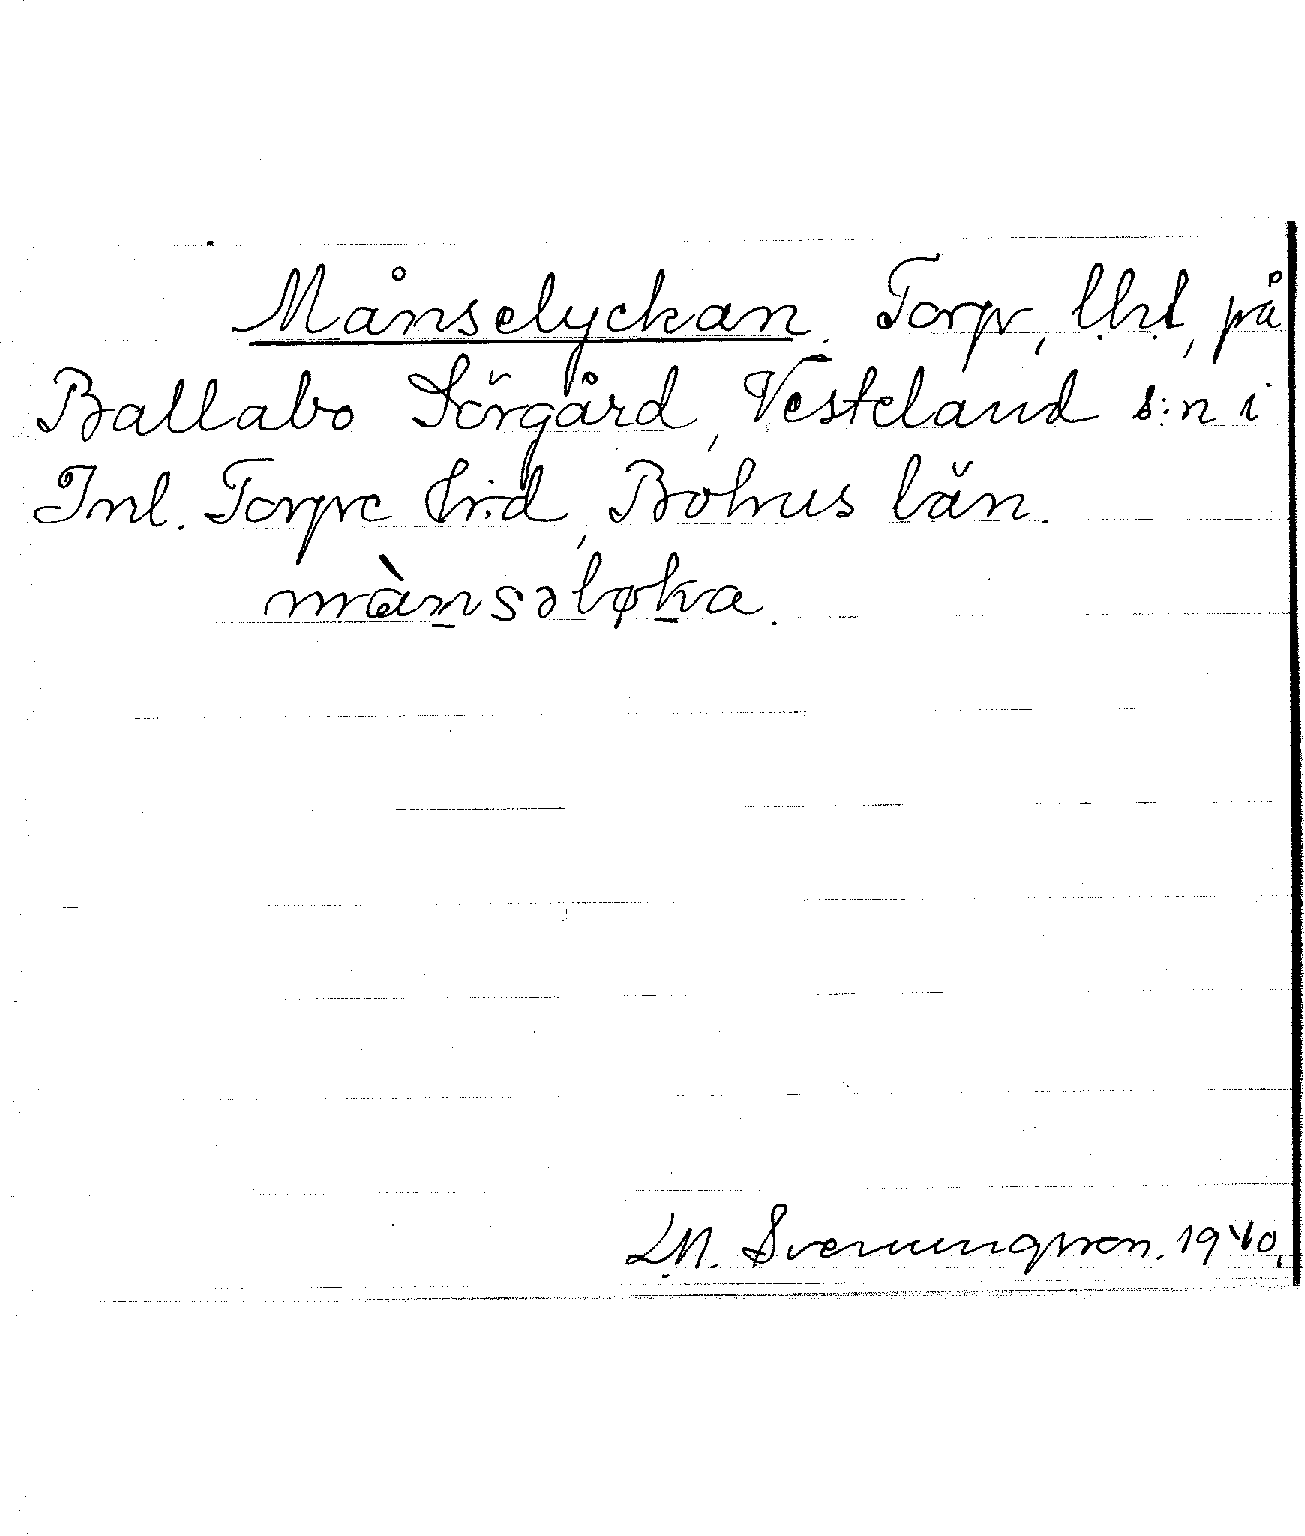 Månselyckan. Torp, l.h.l, på
Ballabo Sörgård, Vesteland s:n i
Inl. Torpe h:d, Bohus län.
mànsəløka.
Svenungsson. 1940.